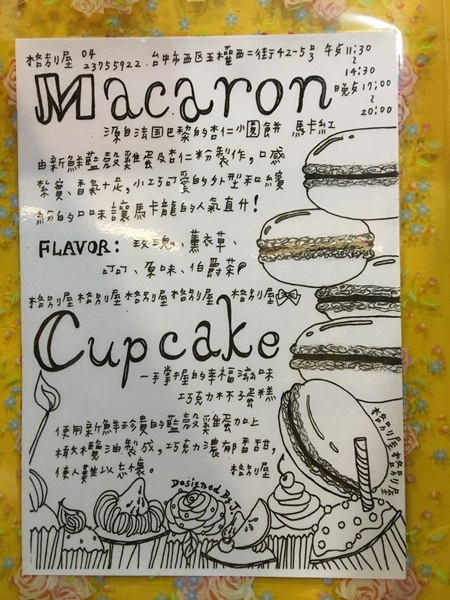 格別屋 04 23755922. 台中市西區五權西二街42-5號 午后 11:30 ~ 14:30
晚点 17:00 ~ 20:00
Macaron
源自法国巴黎的杏仁小圓餅 馬卡紅
由新鮮藍殼雞蛋及杏仁粉製作，口感
紮實、香氣十足，小巧可愛的外型和繽
紛的口味讓馬卡龍的人氣直升！
FLAVOR: 玫瑰、薰衣草、
叮叮、原味、伯爵茶
格別屋 格別屋 格別屋 格別屋 格別屋
Cupcake
一手掌握的幸福滋味
巧克力杯子蛋糕
使用新鮮珍貴的藍殼雞蛋加上
橄欖油製成，巧克力濃郁香甜，
使人難以忘懷。 格別屋
格別屋 格別屋
Designed By J